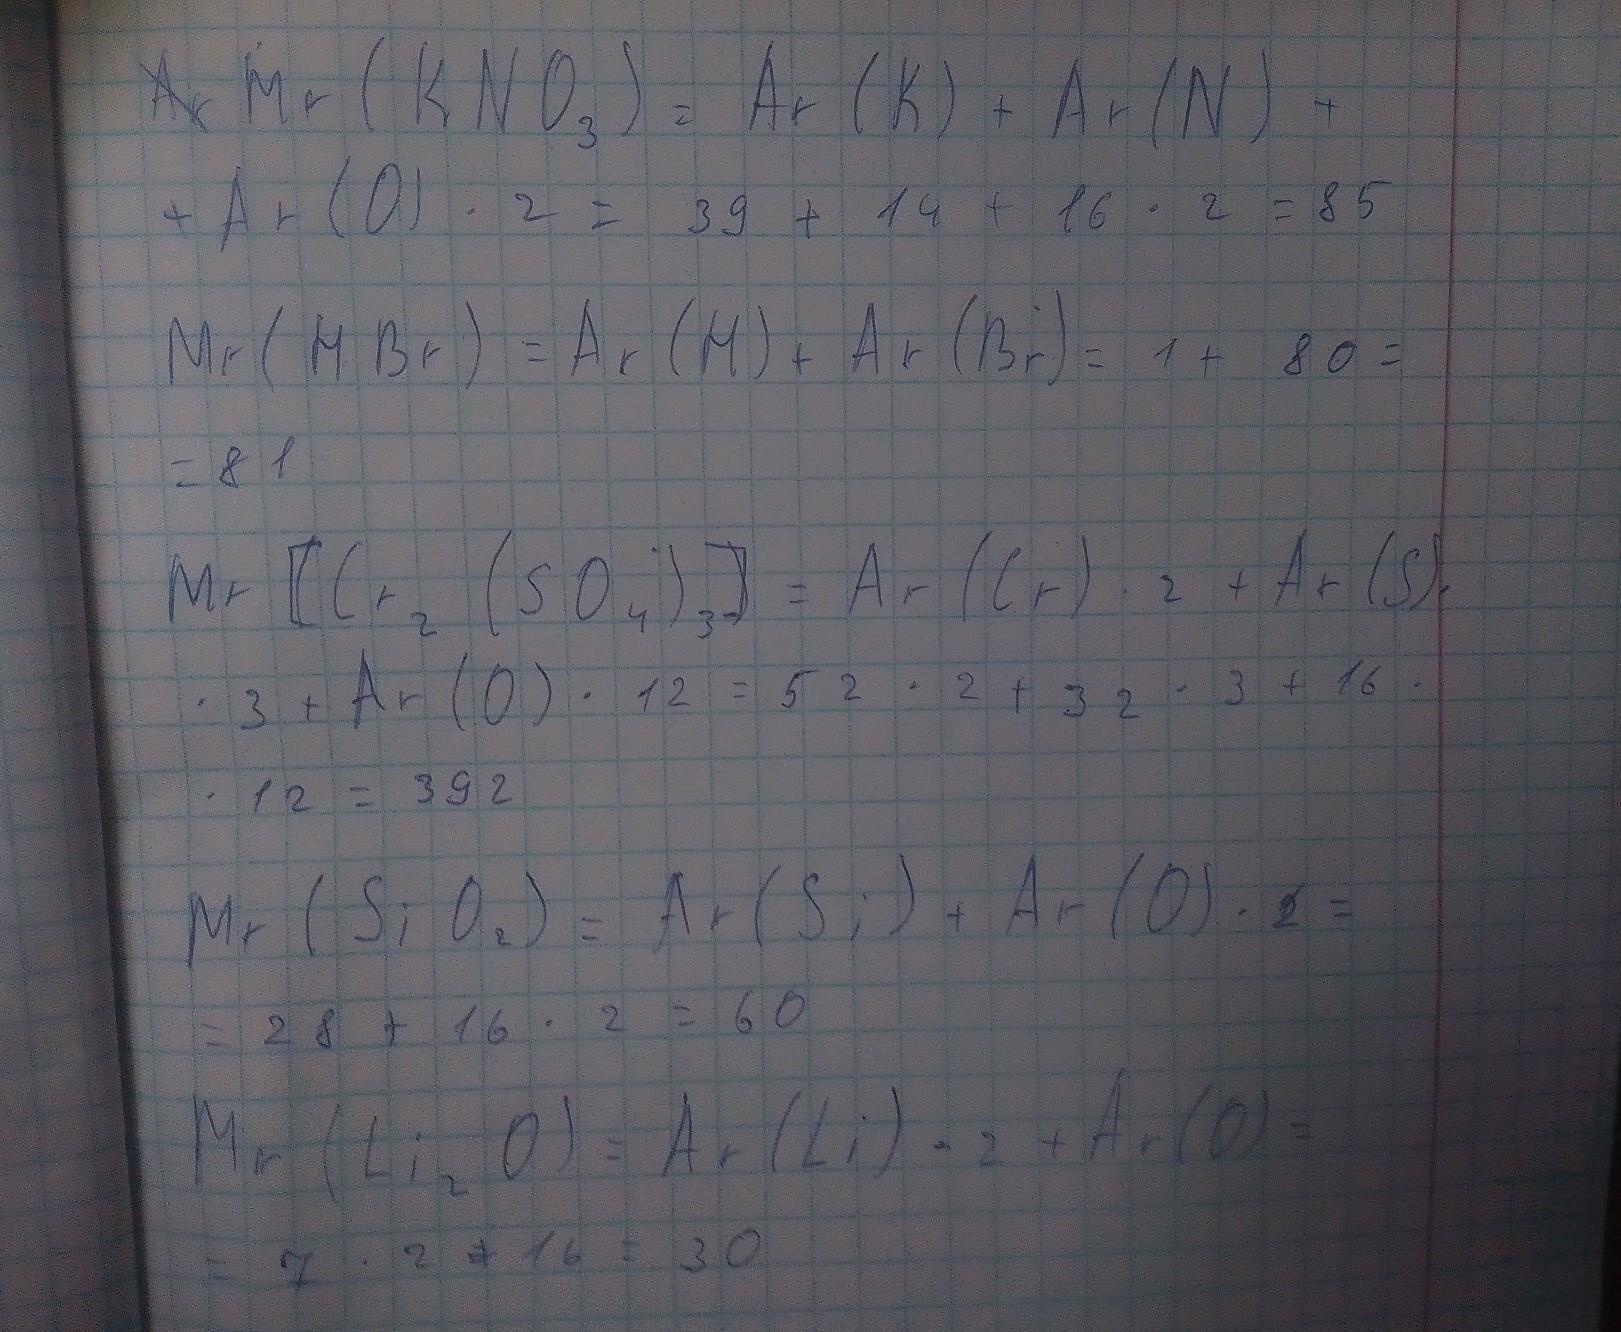 Mr (KNO₃) = Ar (K) + Ar (N) +
+ Ar (O) · 2 = 39 + 14 + 16 · 2 = 85
Mr (HBr) = Ar (H) + Ar (Br) = 1 + 80 =
= 81
Mr [(Cr₂ (SO₄)₃)] = Ar (Cr) · 2 + Ar (S) ·
· 3 + Ar (O) · 12 = 52 · 2 + 32 · 3 + 16 ·
· 12 = 392
Mr (SiO₂) = Ar (Si) + Ar (O) · 2 =
= 28 + 16 · 2 = 60
Mr (Li₂O) = Ar (Li) · 2 + Ar (O) =
= 7 · 2 + 16 = 30